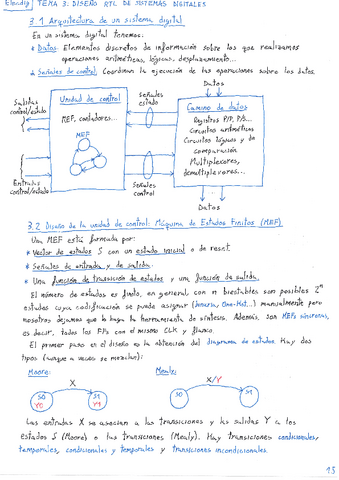 Elecdig TEMA 3: DISEÑO RTL DE SISTEMAS DIGITALES
3.1 Arquitectura de un sistema digital
En un sistema digital tenemos:
* Datos: Elementos discretos de información sobre los que realizamos
operaciones aritméticas, lógicas, desplazamiento...
* Señales de control: Coordinan la ejecución de las operaciones sobre los datos.
Datos
Salidas
control/estado
Unidad de control
MEF, contadores...
MEF
Señales
estado
Camino de datos
Registros P/P, P/S...
Circuitos aritméticos
Circuitos lógicos y de
comparación
Multiplexores,
demultiplexores...
Entradas
control/estado
Señales
control
Datos
3.2 Diseño de la unidad de control: Máquina de Estados Finitos (MEF)
Una MEF está formada por:
* Vector de estados S con un estado inicial o de reset.
* Señales de entrada y de salida.
* Una función de transición de estados y una función de salida.
El número de estados es finito, en general con n biestables son posibles 2^n
estados cuya codificación se puede asignar (binaria, One-Hot...) manualmente pero
nosotros dejamos que lo haga la herramienta de síntesis. Además, son MEFs síncronas,
es decir, todos los FFs con el mismo CLK y flanco.
El primer paso en el diseño es la obtención del diagrama de estados. Hay dos
tipos (aunque a veces se mezclan):
Moore:
Mealy:
X
S0
Y0
S1
Y1
X/Y
S0
S1
Las entradas X se asocian a las transiciones y las salidas Y a los
estados S (Moore) o las transiciones (Mealy). Hay transiciones condicionales,
temporales, condicionales y temporales y transiciones incondicionales.